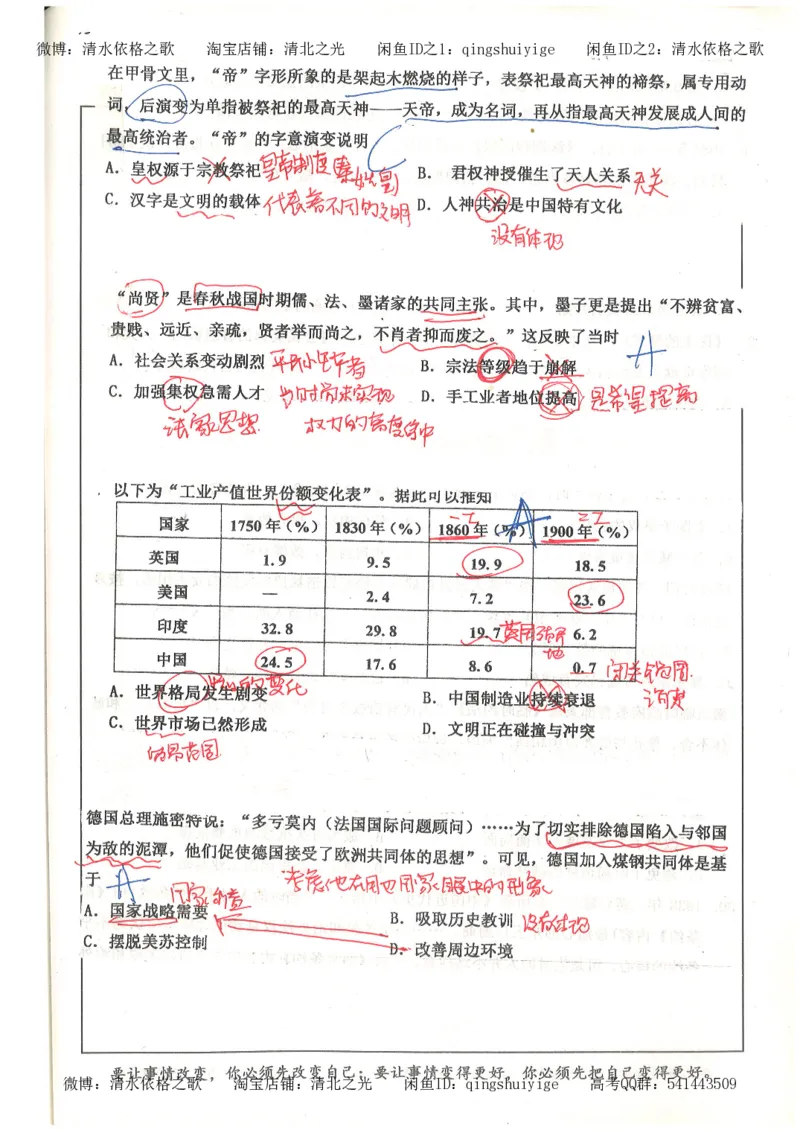 微博：清水依格之歌 淘宝店铺：清北之光 闲鱼ID之1：qingshuiyige 闲鱼ID之2：清水依格之歌
在甲骨文里，“帝”字形所象的是架起木燃烧的样子，表祭祀最高天神的禘祭，属专用动
词，后演变为单指被祭祀的最高天神——天帝，成为名词，再从指最高天神发展成人间的
最高统治者。“帝”的字意演变说明
A. 皇权源于宗教祭祀 皇帝制度 秦始皇
B. 君权神授催生了天人关系 无关
C. 汉字是文明的载体 代表着不同的文明
D. 人神共治是中国特有文化
没有体现
“尚贤”是春秋战国时期儒、法、墨诸家的共同主张。其中，墨子更是提出“不辨贫富、
贵贱、远近、亲疏，贤者举而尚之，不肖者抑而废之。”这反映了当时
A
A. 社会关系变动剧烈
B. 宗法等级趋于崩解
C. 加强集权急需人才 当时尚未实现
D. 手工业者地位提高 是希望提高
法家思想 权力的高度集中
以下为“工业产值世界份额变化表”。据此可以推知
A
国家 1750年（%） 1830年（%） 1860年（%） 1900年（%）
一工 二工
英国 1.9 9.5 19.9 18.5
美国 — 2.4 7.2 23.6
印度 32.8 29.8 19.7 6.2
英国殖民地
中国 24.5 17.6 8.6 0.7
闭关锁国
A. 世界格局发生剧变
B. 中国制造业持续衰退
C. 世界市场已然形成
D. 文明正在碰撞与冲突
德国总理施密特说：“多亏莫内（法国国际问题顾问）……为了切实排除德国陷入与邻国
为敌的泥潭，他们促使德国接受了欧洲共同体的思想”。可见，德国加入煤钢共同体是基
于
A
考虑他在周边国家眼中的形象
国家利益
A. 国家战略需要
B. 吸取历史教训 没有体现
C. 摆脱美苏控制
D. 改善周边环境
要让事情改变，你必须先改变自己；要让事情变得更好，你必须先把自己变得更好。
微博：清水依格之歌 淘宝店铺：清北之光 闲鱼ID：qingshuiyige 高考QQ群：541443509